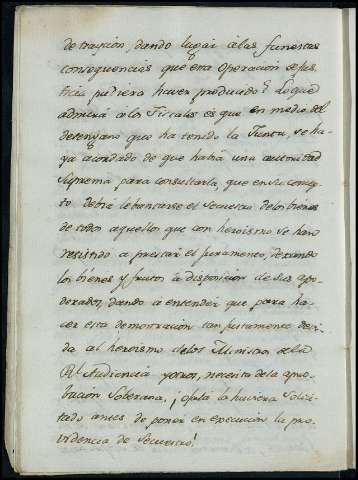 de traycion, dando lugar à las funestas
consequencias que esta Operacion e Jus
ticia pudiera haver producido? Lo que
admira à los Fiscales es que en medio del
desengaño que ha tenido la Junta, se ha-
ya acordado de que havia una autoridad
Suprema para consultarla, que en su concep-
to debia lebantarse el Secuestro de los bienes
de todos aquellos que con heroismo se han
resistido à prestar el juramento, dexando
los bienes y frutos à disposicion de sus apo-
derados, dando à entender que para ha-
cer esta demostracion tan justamente devi-
da al heroismo de los Ministros de la
Rl Audiencia y otros, necesita de la apro-
bacion Soberana, ¡ojala la huviera Solici-
tado antes de poner en execucion la pro-
videncia de Secuestro!